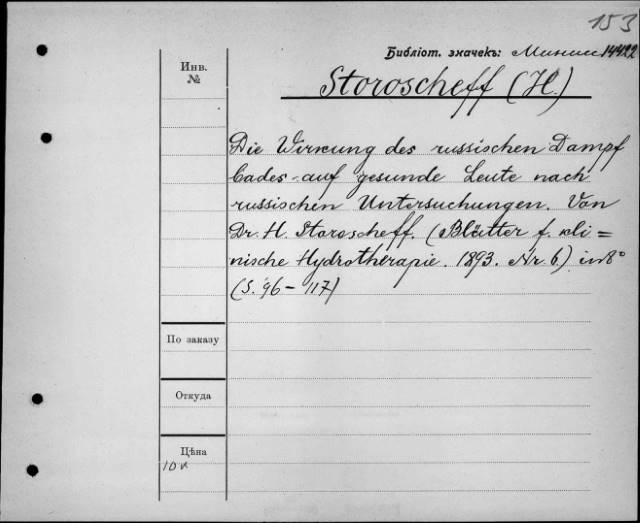 153
Библіот. значекъ: Минин 14422
Инв.
№
Storoscheff (H.)
Die Wirkung des russischen Dampf
bades auf gesunde Leute nach
russischen Untersuchungen. Von
Dr. H. Storoscheff. (Blätter f. kli=
nische Hydrotherapie. 1893. Nr 6) in 8°
(S. 96-117)
По заказу
Откуда
Цѣна
10 к